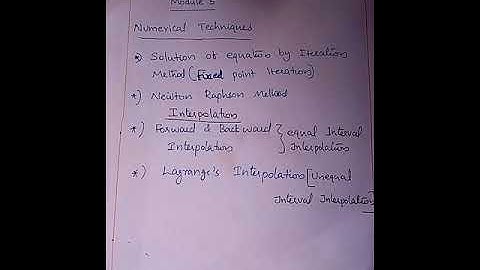 Module 5
Numerical Techniques
*) Solution of equations by Iteration
Method (Fixed point Iteration)
*) Newton Raphson Method
Interpolation
*) Forward & Backward } equal Interval
Interpolation } Interpolation
*) Lagrange's Interpolation [Unequal
Interval Interpolation]